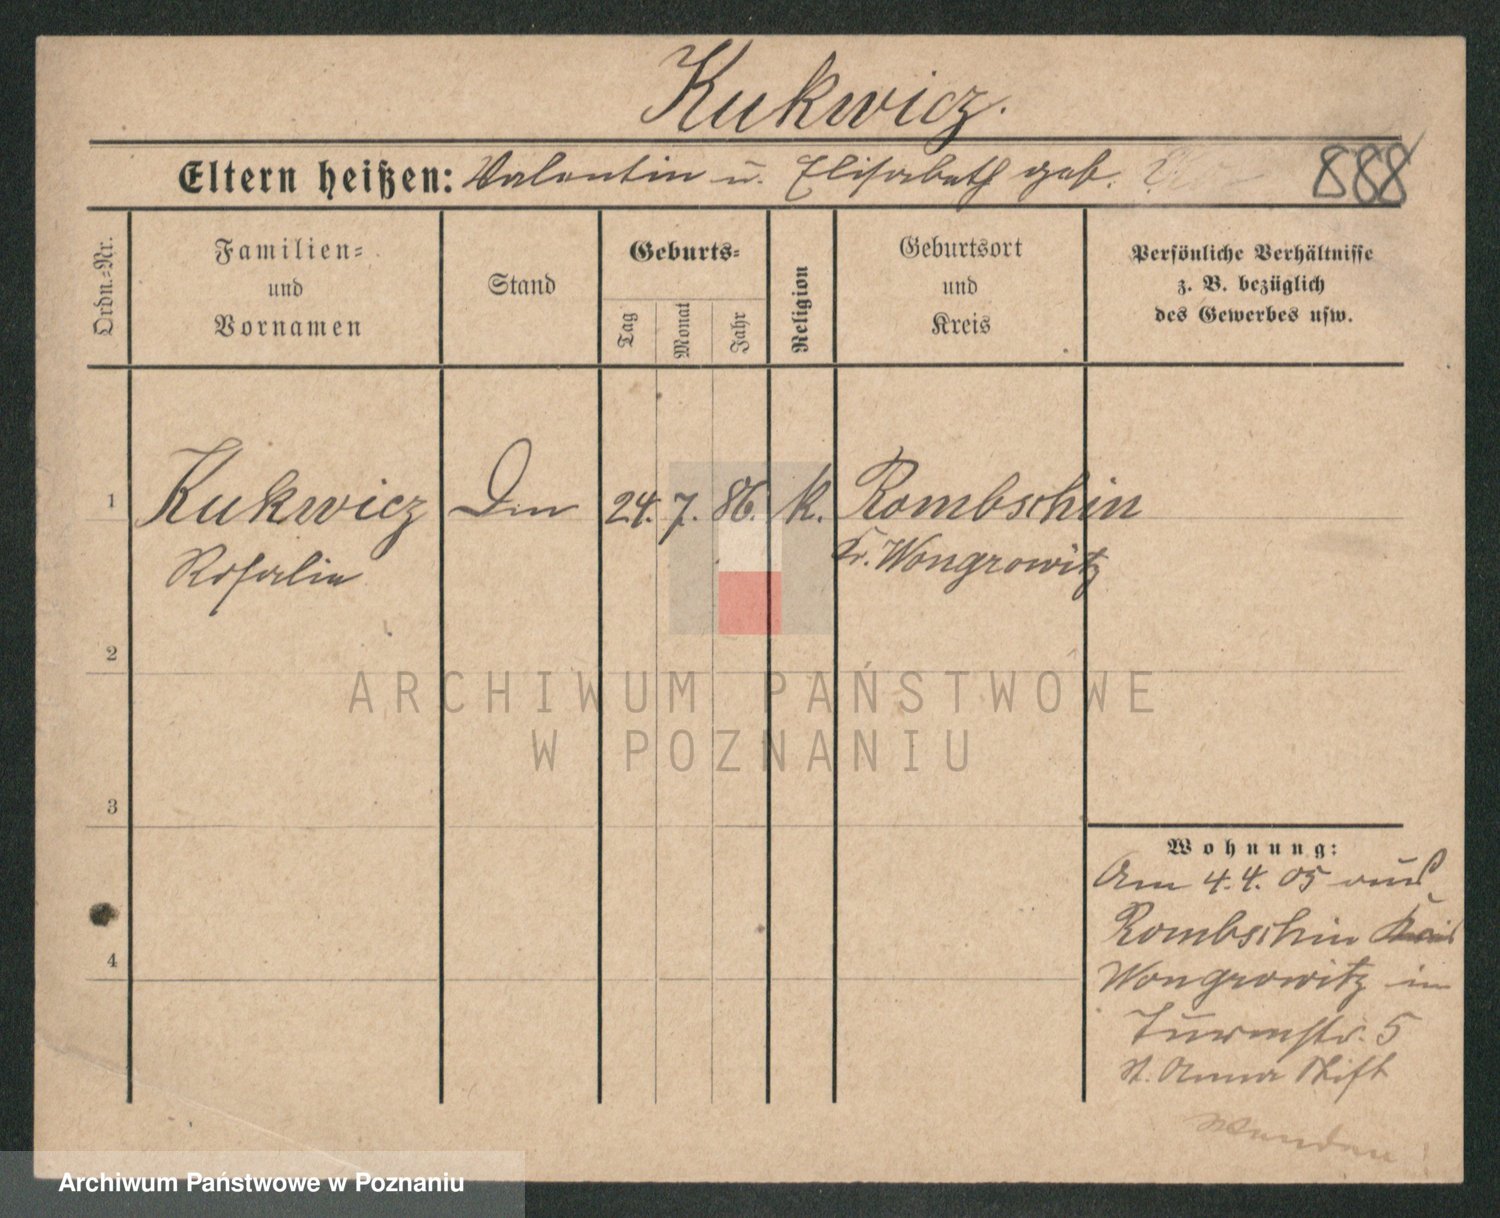 Kukwicz.
Eltern heißen: Valentin u. Elisabeth geb.
888
Ordn.-Nr.
Familien-
und
Vornamen
Stand
Geburts-
Tag
Monat
Jahr
Religion
Geburtsort
und
Kreis
Persönliche Verhältnisse
z. B. bezüglich
des Gewerbes usw.
1
Kukwicz
Rosalie
24. 7. 86. k.
Rombschin
Kr. Wongrowitz
2
3
4
Wohnung:
Am 4.4.05 aus
Rombschin Kreis
Wongrowitz in
Turmstr. 5
St. Anna Stift
Wenden
ARCHIWUM PAŃSTWOWE
W POZNANIU
Archiwum Państwowe w Poznaniu